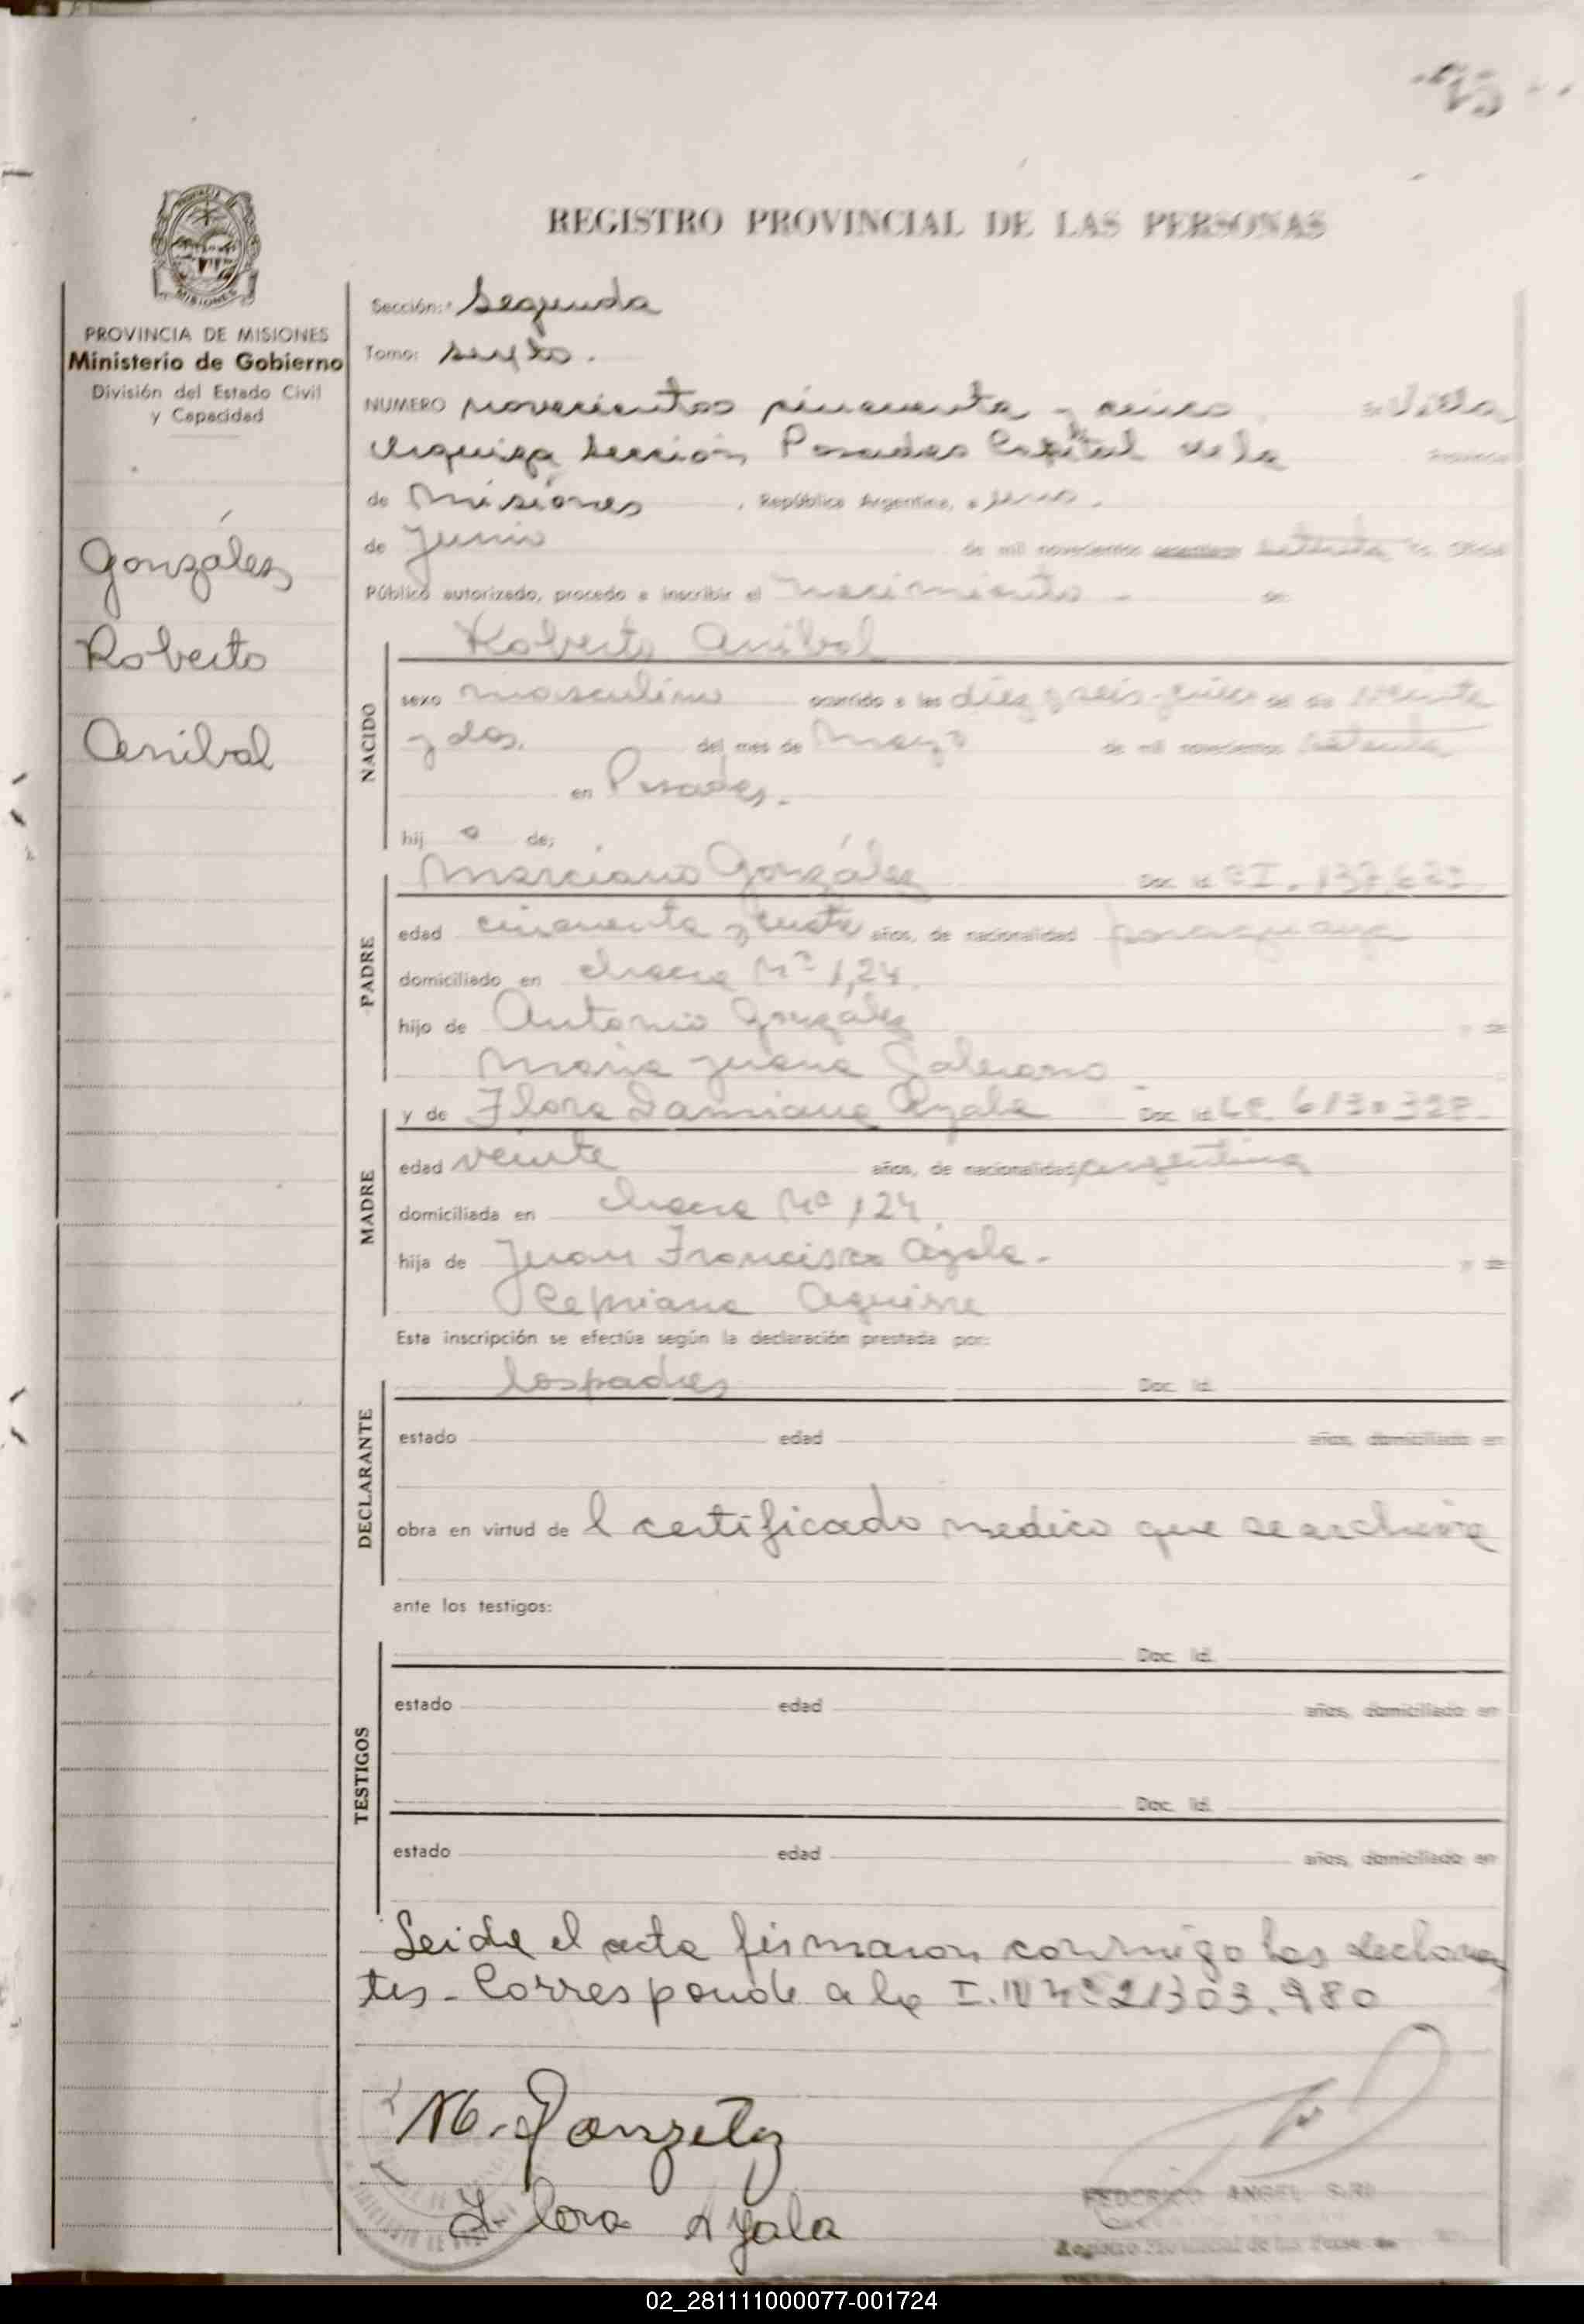 REGISTRO PROVINCIAL DE LAS PERSONAS
MISIONES
PROVINCIA DE MISIONES
Ministerio de Gobierno
División del Estado Civil
y Capacidad
González
Roberto
Anibal
Sección: Segunda
Tomo: sexto.
NUMERO novecientos cincuenta y cinco. en Villa
Urquiza Sección Posadas Capital de la Provincia
de Misiones , República Argentina, a
de Junio de mil novecientos setenta Yo, Oficial
Público autorizado, procedo a inscribir el nacimiento - de:
Roberto Anibal
NACIDO
sexo masculino ocurrido a las diez y seis quince del día veinte
y dos. del mes de mayo de mil novecientos setenta
en Posadas.-
hij o de;
PADRE
Marciano González Doc. Id. CI.
edad cincuenta y años, de nacionalidad paraguaya
domiciliado en chacra Nº 124.
hijo de Antonio González y de
Maria Juana Galeano
MADRE
y de Flora Damiana Ayala Doc. Id. LC.
edad veinte años, de nacionalidad argentina
domiciliada en chacra Nº 124.
hija de Juan Francisco Ayala.- y de
Cepriana Aguirre
Esta inscripción se efectúa según la declaración prestada por:
DECLARANTE
los padres Doc. Id.
estado edad años, domiciliado en
obra en virtud de l certificado medico que se archiva
ante los testigos:
TESTIGOS
Doc. Id.
estado edad años, domiciliado en
Doc. Id.
estado edad años, domiciliado en
Leida el acta firmaron conmigo los declaran
tes - Corresponde a la I. N Nº 21303.980
M. Gonzalez
Flora Ayala
FEDERICO ANGEL SIRI
Registro Provincial de las Personas
02_281111000077-001724